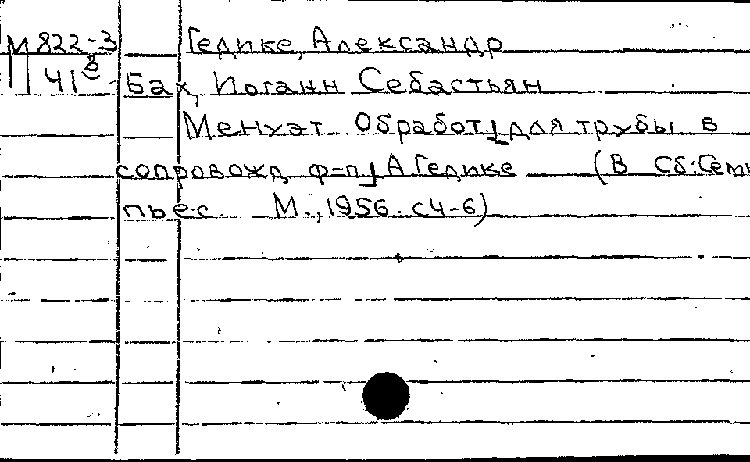 М 822-3 Гедике, Александр
41 в Бах, Иоганн Себастьян
Менуэт Обработ. для трубы в
сопровожд ф-п. А Гедике (В сб: Семь
пьес М., 1956. с 4-6)